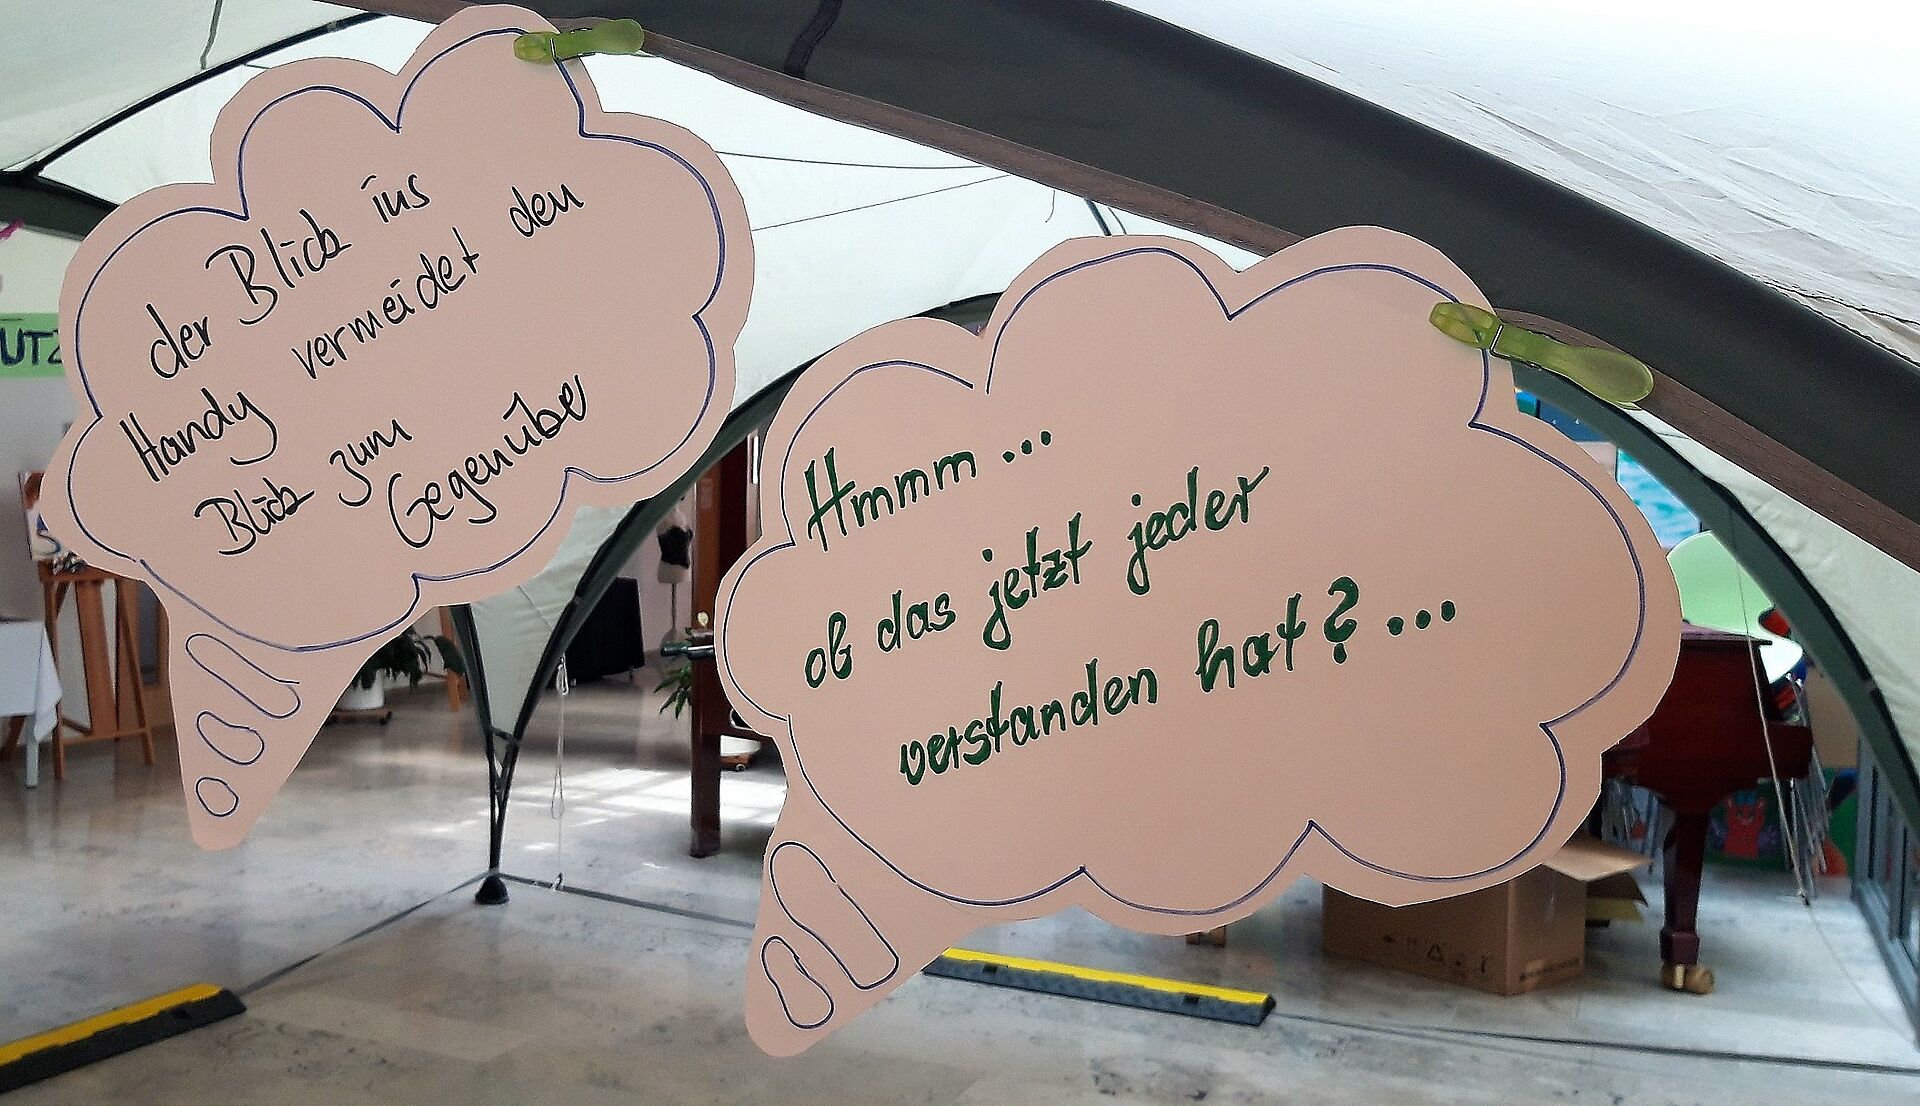 der Blick ins
Handy vermeidet den
Blick zum
Gegenüber
Hmmm...
ob das jetzt jeder
verstanden hat?...